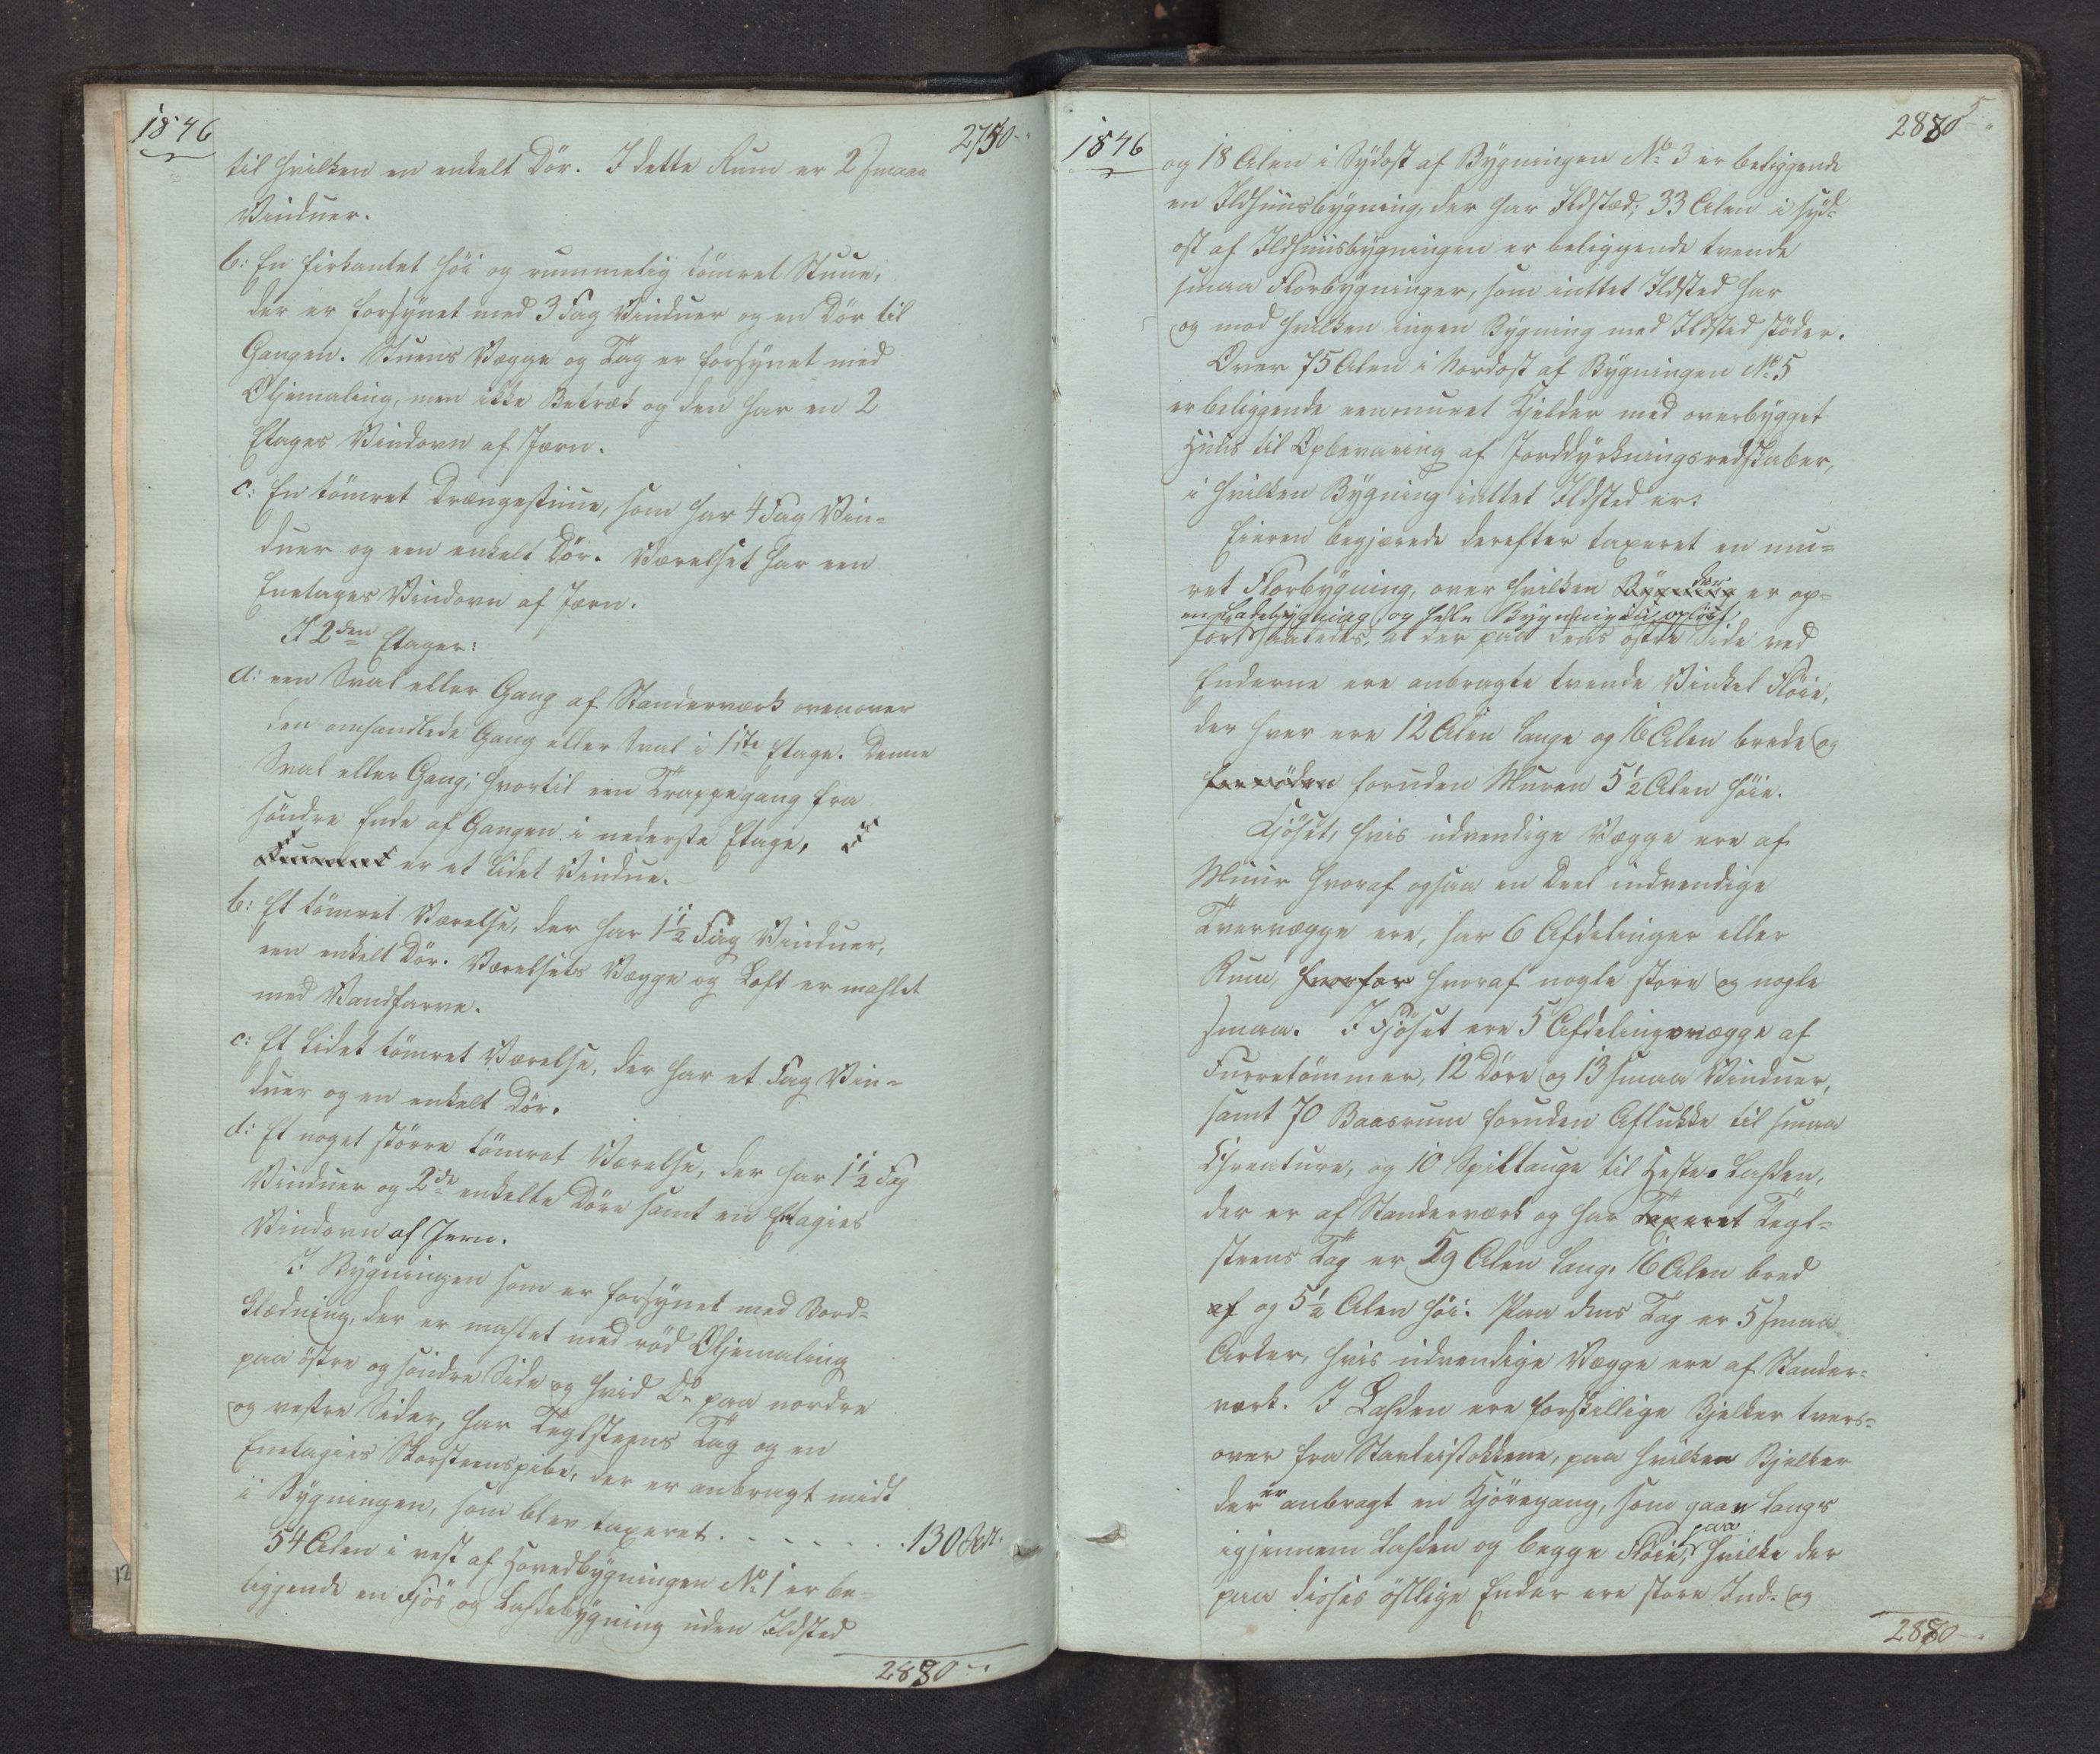 1846
2750..
til hvilken en enkelt Dör. I dette Rum er 2 smaae
Vinduer.
b: En firkantet höi og rummelig tömret Stuue,
der er forsynet med 3 Fag Vinduer og en Dör til
Gangen. Stuens Vægge og Tag er forsynet med
Oljemaling, men ikke Betræk og den har en 2
Etages Vindovn af Jern.
c: En tömret Drængestuue, som har 4 Fag Vin=
duer og een enkelt Dör. Værelset har een
Enetages Vindovn af Jern.
I 2den Etage:
a: een Sval eller Gang af Standerværk ovenover
den omhandlede Gang eller Sval i 1ste Etage. Denne
Sval eller Gang, hvortil een Trappegang fra
söndre Ende af Gangen i nederste Etage,
er et lidet Vindue.
b: Et tömret Værelse, der har 1½ Fag Vinduer,
een enkelt Dör. Værelsets Vægge og Loft er mahlet
med Vandfarve.
c: Et lidet tömret Værelse, der har et Fag Vin=
duer og en enkelt Dör.
d: Et noget större tömret Værelse, der har 1½ Fag
Vinduer og 2de enkelte Döre samt en Etagies
Vindovn af Jern.
Bygningen som er forsynet med Bord=
klædning, der er mahlet med röd Oljemaling
paa östre og söndre Side og hvid Do paa nordre
og vestre Sider, har Teglsteens Tag og en
Enetagies Skorsteenspibe, der er anbragt midt
i Bygningen, som blev taxeret . - - - - - . 130 Sdl.
54 Alen i vest af Hovedbygningen No 1 er be=
liggende en Fjös og Lahdebygning uden Ildsted
2880..
12
1846
2880 5
og 18 Alen i Sydost af Bygningen No 3 er beliggende
en Ildhuusbygning, der har Ildsted; 33 Alen i syd=
ost af Ildhuusbygningen er beliggende tvende
smaa Florbygninger, som intet Ildsted har
og mod hvilken ingen Bygning med Ildsted stöder.
Over 75 Alen i Nordost af Bygningen No 5
er beliggende een muret Kjelder med overbygget
Huus til Opbevaring af Jorddyrkningsredskaber,
i hvilken Bygning intet Ildsted er.
Eieren begjærede derefter taxeret en mu=
ret Florbygning, over hvilken Bygning der er op=
en Ladebygning og hele Bygningen er
fört saaledes, at der paa dens östre Side ved
Enderne ere anbragte tvende Vinkel Flöie,
der hver ere 12 Alen lange og 16 Alen brede og
foruden Muren 5½ Alen höie.
Fjöset, hvis udvendige Vægge ere af
Muur hvoraf ogsaa en Deel indvendige
Tvervægge ere, har 6 Afdelinger eller
Rum, hvorfor hvoraf nogle store og nogle
smaa. I Fjöset ere 5 Afdelingsvægge af
Furretömmer, 12 Döre og 13 smaa Vinduer,
samt 70 Baasrum foruden Aflukke til smaa
Creature, og 10 Spiltauge til Heste. Lahden,
der er af Standerværk og har Taxeret Tegl=
steens Tag er 59 Alen lang, 16 Alen bred
af og 5½ Alen höi. Paa dens Tag er 5 smaa
Arker, hvis udvendige Vægge ere af Stander=
værk. I Lahden ere forskillige Bjelker tvers=
over fra Stavleistokkene, paa hvilken Bjelker
der er anbragt en Kjöregang, som gaar langs
igjennem Lahden og begge Flöie, paa hvilke der
paa disses östlige Ender ere store Ind- og
2880..